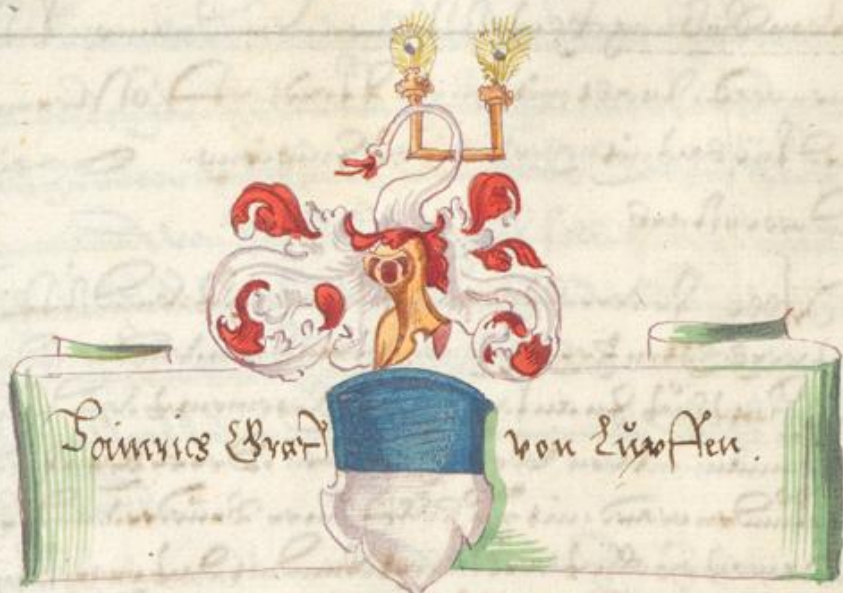 Hainrich Graf von Lupffen.